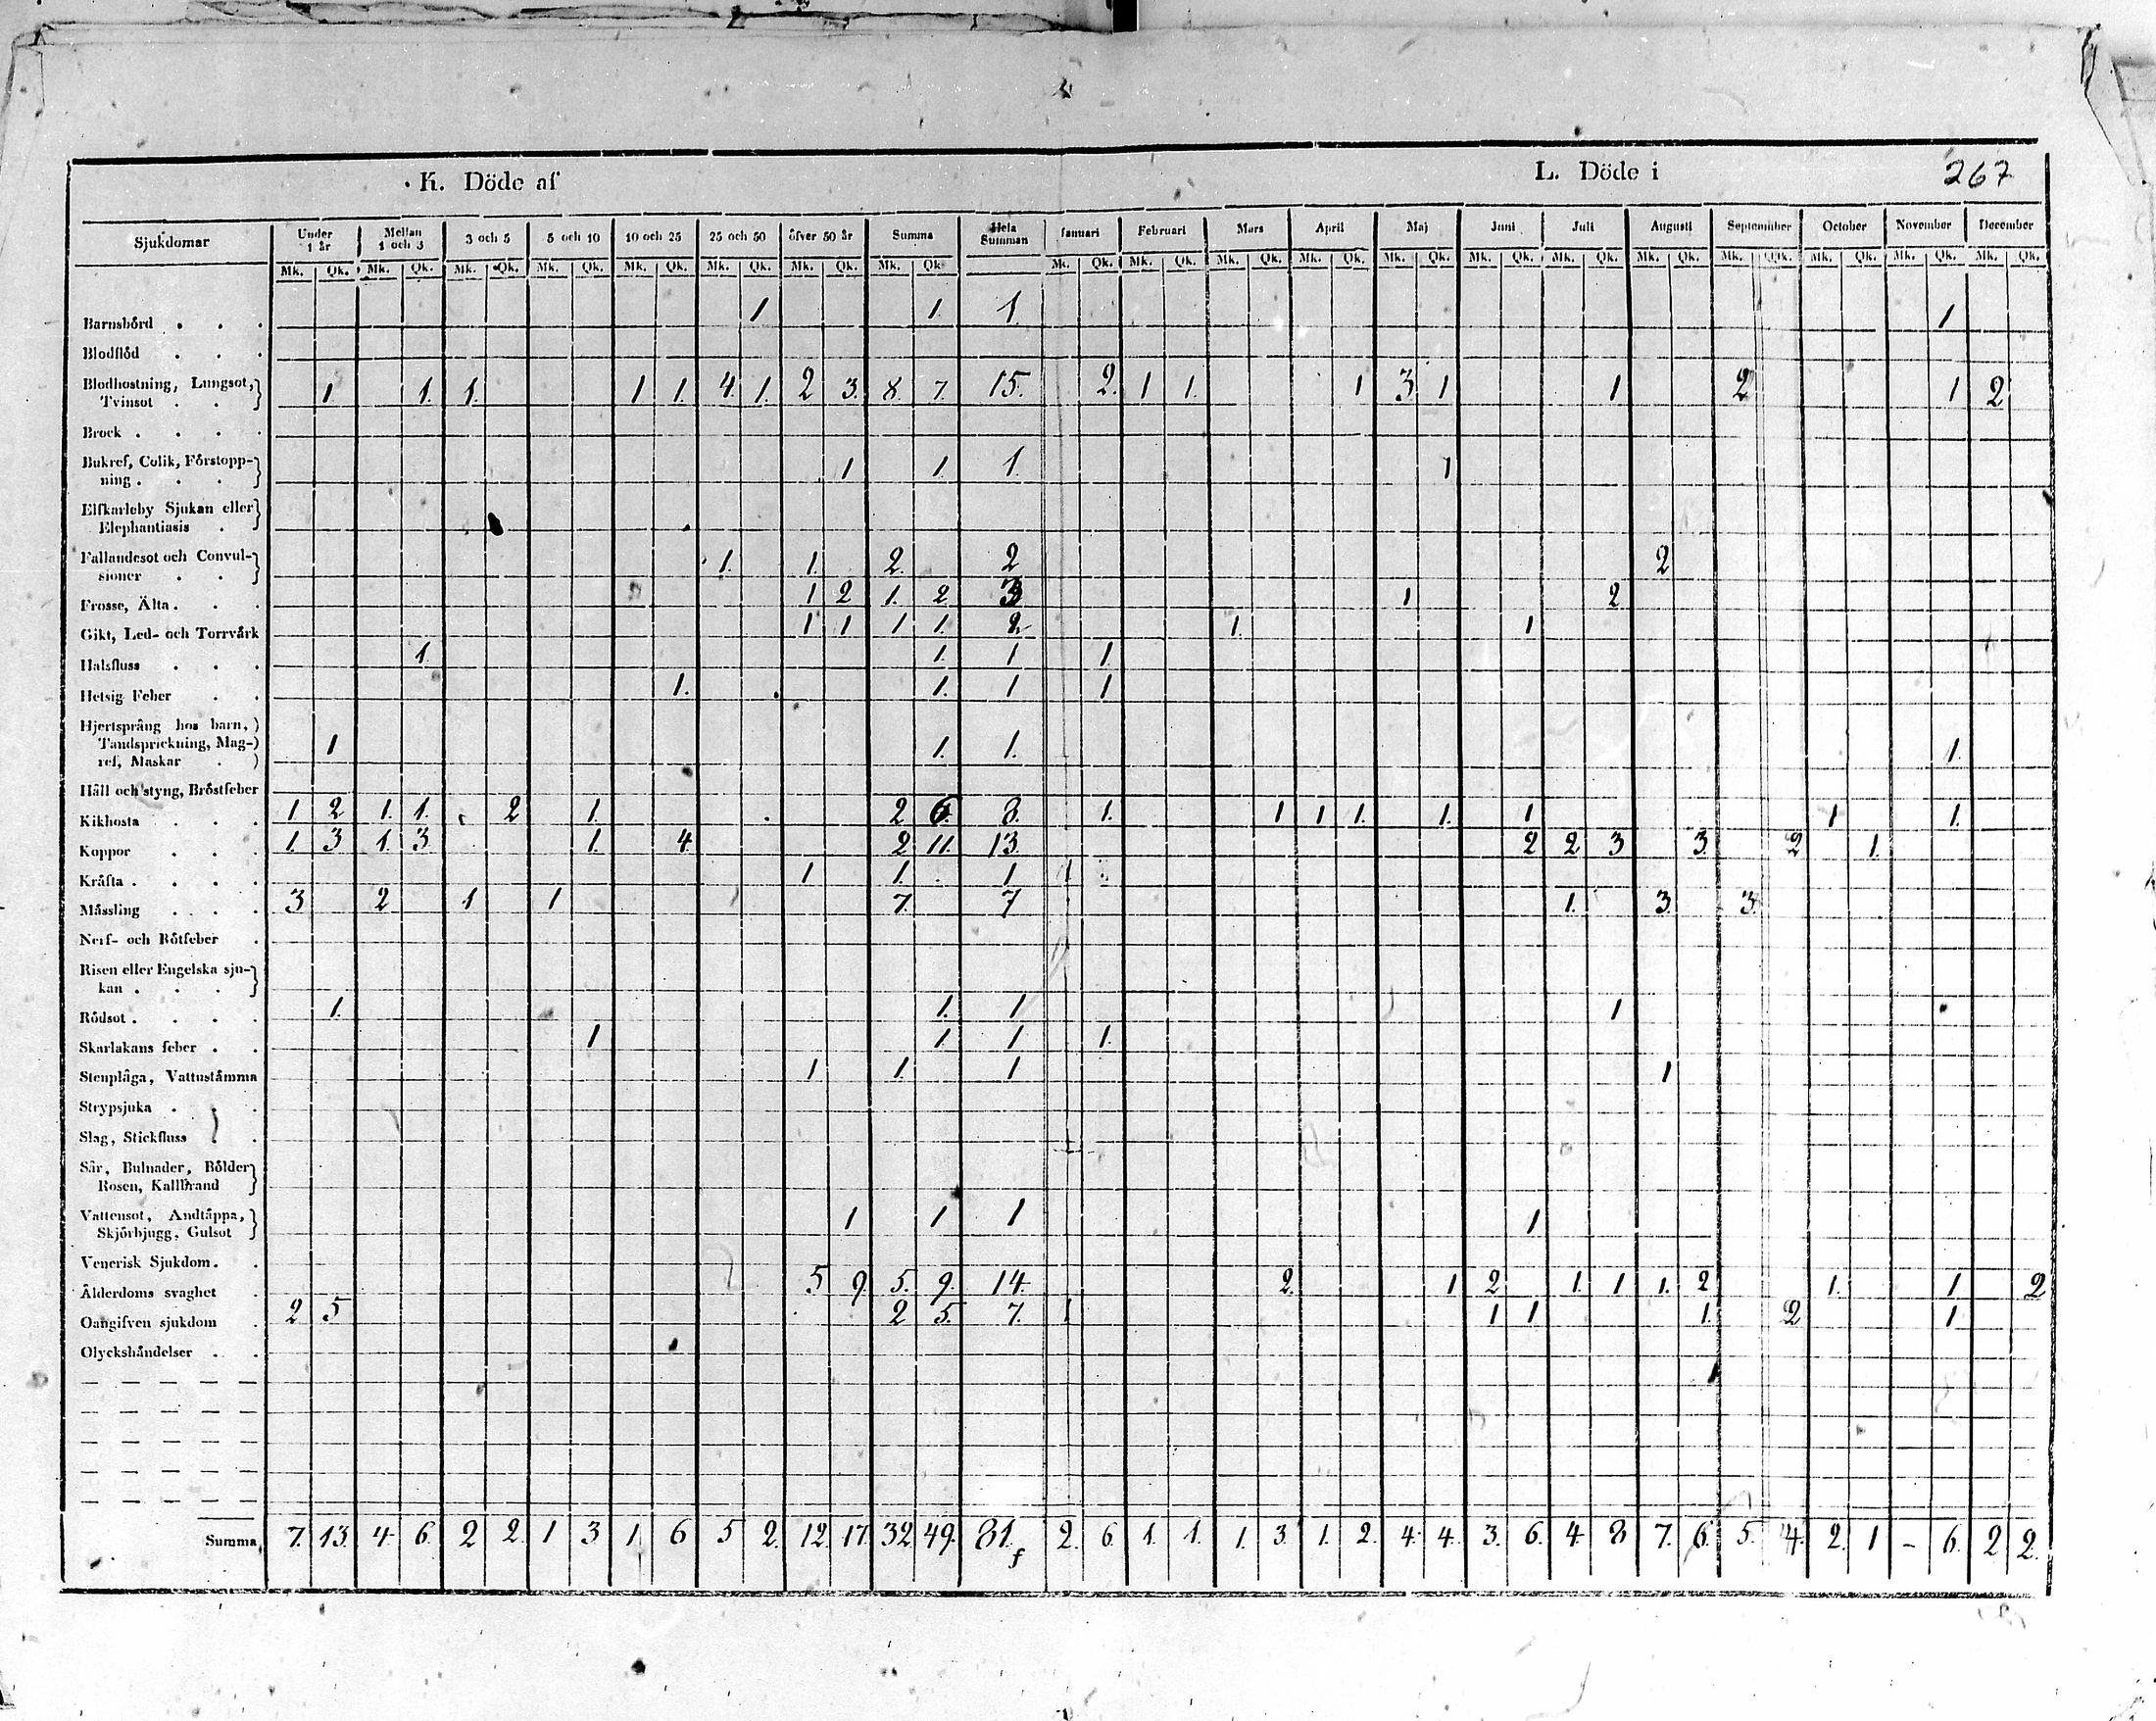 K. Döde af L. Döde i 267
Sjukdomar Under 1 år Mellan 1 och 3 3 och 5 5 och 10 10 och 25 25 och 50 öfver 50 år Summa Hela Summan Januari Februari Mars April Maj Juni Juli Augusti September October November December
Mk. Qk. Mk. Qk. Mk. Qk. Mk. Qk. Mk. Qk. Mk. Qk. Mk. Qk. Mk. Qk. Mk. Qk. Mk. Qk. Mk. Qk. Mk. Qk. Mk. Qk. Mk. Qk. Mk. Qk. Mk. Qk. Mk. Qk. Mk. Qk. Mk. Qk. Mk. Qk.
Barnsbörd . . . 1 1. 1. 1
Blodflöd . . .
Blodhostning, Lungsot,
Tvinsot . . 1 1. 1. 1 1. 4. 1. 2 3. 8. 7. 15. 2. 1 1. 1 3. 1 1 2 1 2
Brock . . . .
Bukref, Colik, Förstopp-
ning . . . 1 1. 1 1
Elfkarleby Sjukan eller
Elephantiasis .
Fallandesot och Convul-
sioner . . 1. 1. 2. 2 2
Frosse, Älta . . . 1 2 1. 2 3 1 2
Gikt, Led- och Torrvårk 1 1 1 1. 2 1. 1
Halsfluss . . . 1 1. 1 1.
Hetsig Feber . . 1. 1. 1 1
Hjertsprång hos barn,
Tandsprickning, Mag-
ref, Maskar . 1 1. 1. 1.
Håll och styng, Bröstfeber
Kikhosta . . . 1 2 1. 1. 2 1. 2 6. 8. 1. 1 1 1. 1. 1 1 1.
Koppor . . . 1. 3 1. 3 1. 4. 2 11. 13. 2 2 3 3. 2 1.
Kråfta . . . . 1 1. 1 1
Måssling . . . 3 2 1 1 7. 7 1. 3. 3.
Nerf- och Rötfeber .
Risen eller Engelska sju-
kan . . .
Rödsot . . . . 1. 1. 1 1
Skarlakans feber . . 1 1 1 1.
Stenplåga, Vattuståmma 1 1. 1 1
Strypsjuka . . .
Slag, Stickfluss . .
Sår, Bulnader, Bölder
Rosen, Kallbrand
Vattensot, Andtäppa,
Skjörbjugg, Gulsot 1 1 1 1
Venerisk Sjukdom . .
Ålderdoms svaghet . 5 9. 5. 9. 14. 2. 1 2 1. 1 1. 2 1. 1 2
Oangifven sjukdom . 2 5 2 5. 7. 1 1 1 1. 2 1
Olyckshåndelser . .
1
Summa 7. 13. 4. 6. 2 2. 1 3 1. 6 5 2. 12. 17. 32. 49. 81. 2. 6. 1. 1. 1. 3. 1. 2. 4. 4. 3. 6. 4. 8 7. 6. 5. 4. 2. 1 - 6. 2 2.